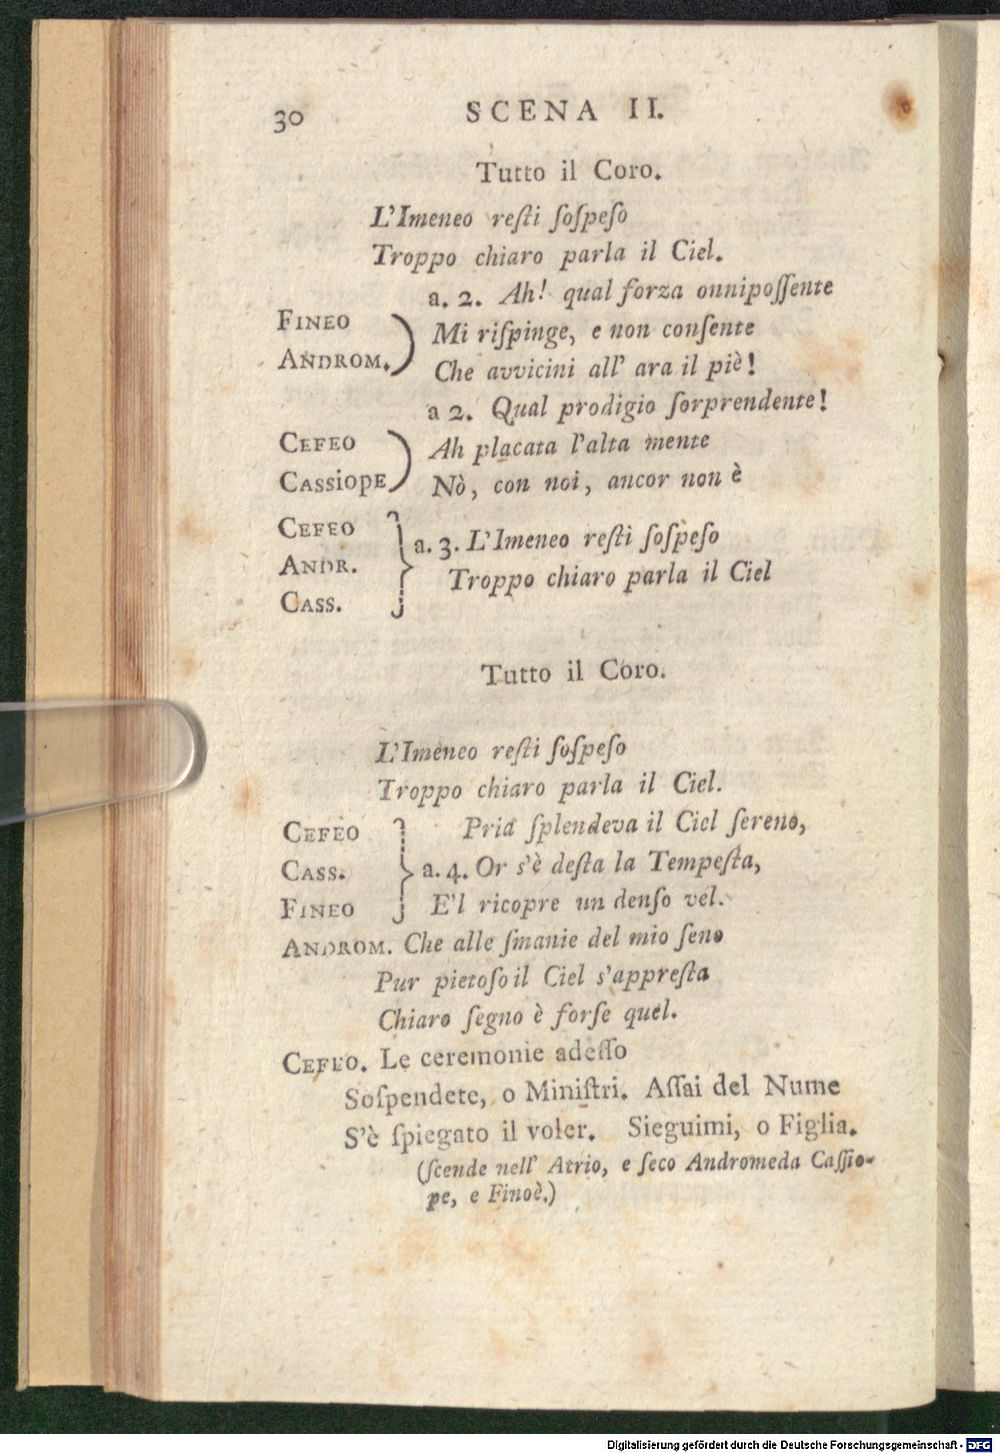 30 SCENA II.
Tutto il Coro.
L'Imeneo reſti ſoſpeſo
Troppo chiaro parla il Ciel.
a. 2. Ah! qual forza onnipoſſente
FINEO Mi riſpinge, e non conſente
ANDROM. Che avvicini all' ara il piè!
a 2. Qual prodigio ſorprendente!
CEFEO Ah placata l'alta mente
CASSiopE Nò, con noi, ancor non è
CEFEO
a. 3. L'Imeneo reſti ſoſpeſo
ANDR.
Troppo chiaro parla il Ciel
CASS.
Tutto il Coro.
L'Imeneo reſti ſoſpeſo
Troppo chiaro parla il Ciel.
CEFEO Pria ſplendeva il Ciel ſereno,
CASS. a. 4. Or s'è deſta la Tempeſta,
FINEO E'l ricopre un denſo vel.
ANDROM. Che alle ſmanie del mio ſeno
Pur pietoſo il Ciel s'appreſta
Chiaro ſegno è forſe quel.
CEFEO. Le ceremonie adeſſo
Soſpendete, o Miniſtri. Aſſai del Nume
S'è ſpiegato il voler. Sieguimi, o Figlia.
(ſcende nell' Atrio, e ſeco Andromeda Caſſio-
pe, e Finoè.)
Digitalisierung gefördert durch die Deutsche Forschungsgemeinschaft - DFG